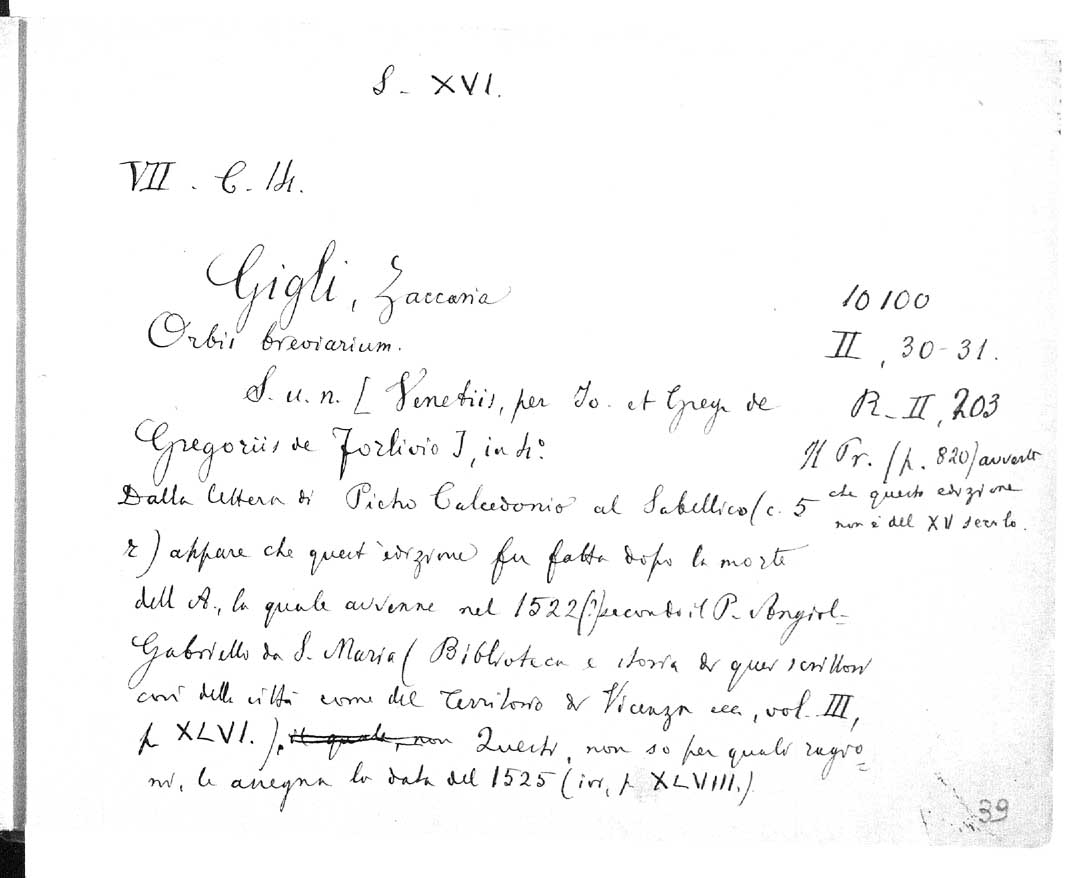 S. XVI.
VII. C. 14.
Gigli, Zaccaria
Orbis breviarium.
S. u. n. [Venetiis, per Io. et Greg. de
Gregoriis de Forlivio], in 4°.
Dalla lettera di Pietro Calcedonio al Sabellico (c. 5
r) appare che quest'edizione fu fatta dopo la morte
dell A., la quale avvenne nel 1522(?) secondo il P. Angiol-
Gabriello da S. Maria (Biblioteca e storia di quei scrittori
così della città come del Territorio di Vicenza ecc, vol. III,
p XLVI.), il quale, non Questi, non so per quali ragio=
ni, le assegna la data del 1525 (ivi, p XLVIII.)
10100
II, 30-31.
R. II, 203
Il Pr. (p. 820) avverte
che questa edizione
non è del XV secolo.
39